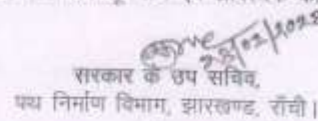 22/02/2023
सरकार के उप सचिव,
पथ निर्माण विभाग, झारखण्ड, राँची।